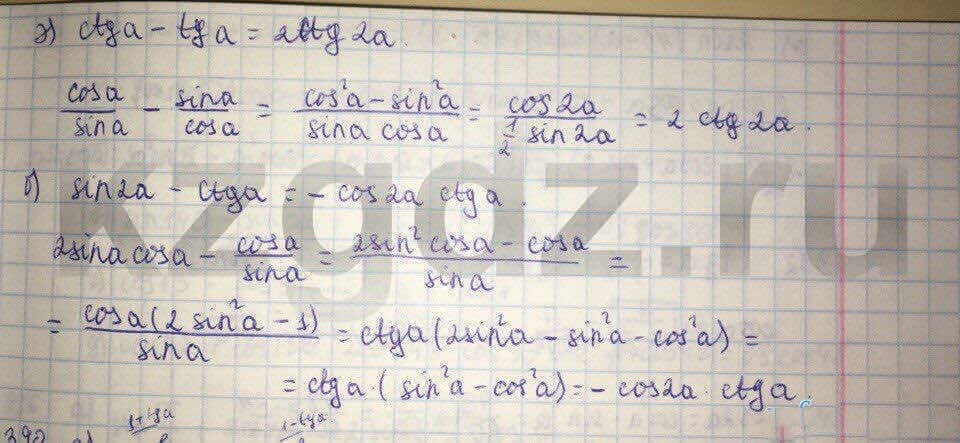 г) ctg a - tg a = 2ctg 2a.
cos a / sin a - sin a / cos a = cos²a - sin²a / sin a cos a = cos 2a / ½ sin 2a = 2 ctg 2a.
б) sin 2a - ctg a = - cos 2a ctg a.
2 sin a cos a - cos a / sin a = 2sin² cos a - cos a / sin a =
= cos a (2 sin²a - 1) / sin a = ctg a (2sin²a - sin²a - cos²a) =
= ctg a · (sin²a - cos²a) = - cos 2a · ctg a.
390
1+tga 1-tga
kzgdz.ru